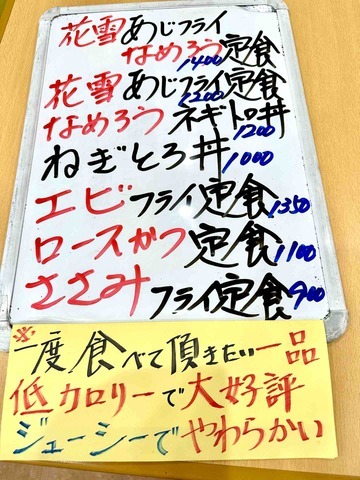 花雪あじフライ
なめろう定食
1400
花雪あじフライ定食
1200
なめろうネギトロ丼
1200
ねぎとろ丼 1000
エビフライ定食 1350
ロースかつ定食 1100
ささみフライ定食 900
※一度食べて頂きたい一品
低カロリーで大好評
ジューシーでやわらかい